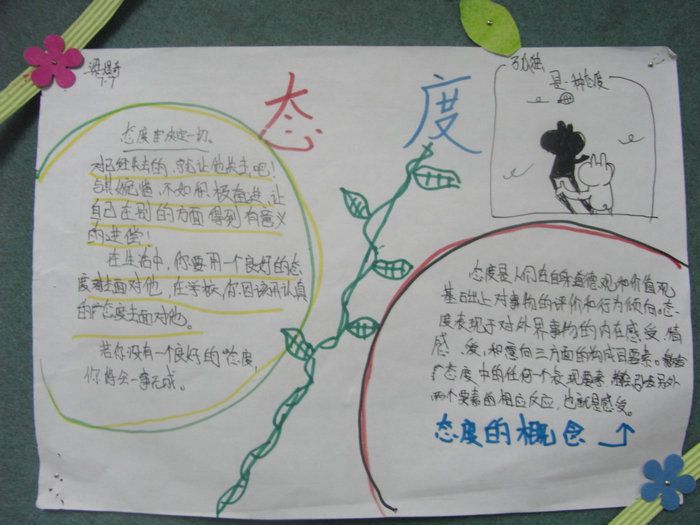 态度
态度来决定一切。
对已经失去的,就让他失去吧!
与其惋惜,不如积极奋进,让
自己在别的方面得到有意义
的进偿!
在生活中,你要用一个良好的态
度去面对他,在学校,你因该用认真
的态度去面对他。
若你没有一个良好的态度,
你将会一事无成。
孤独
是一种态度
态度是人们在自身道德观和价值观
基础上对事物的评价和行为倾向。态
度表现于对外界事物的内在感受、情
感、爱,和意向三方面的构成要素。
态度中的任何一个表现要素,
两个要素的相应反应,也就是感受。
态度的概念